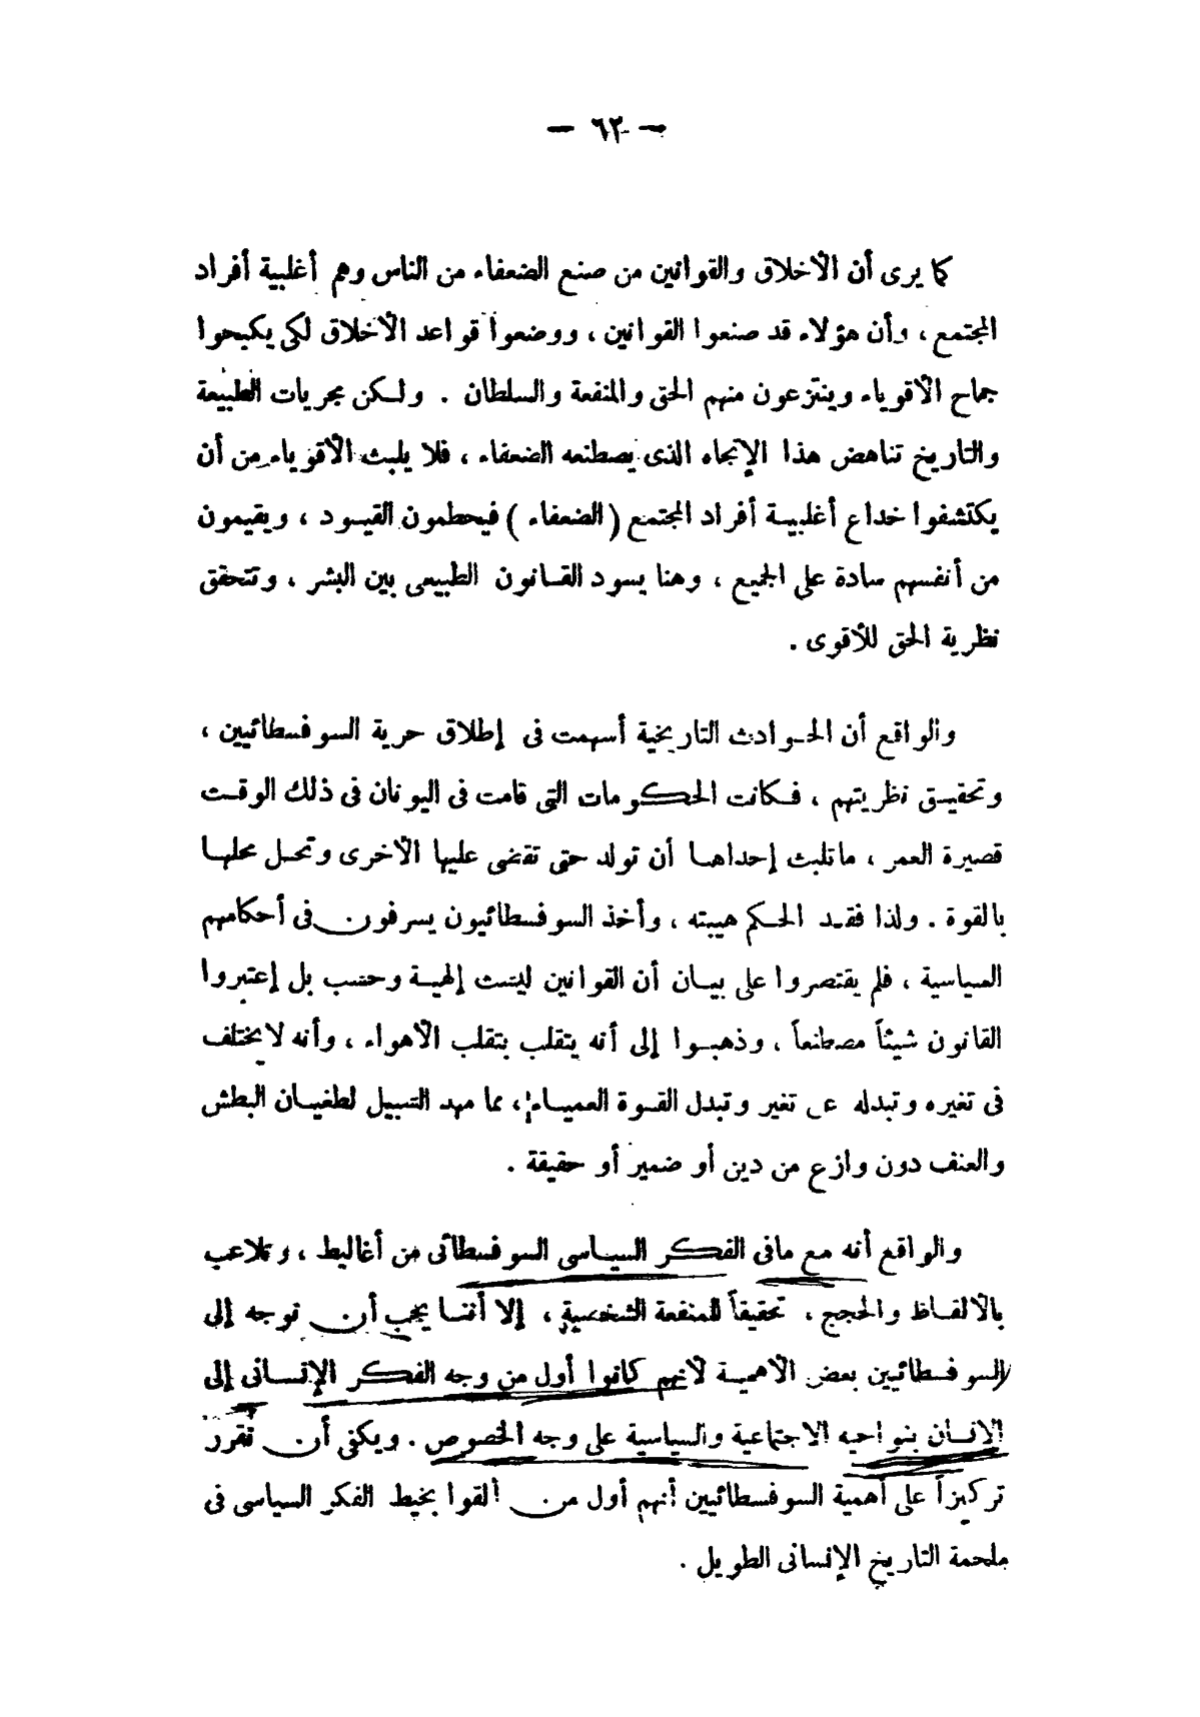 — ٦٢ —
كما يرى أن الأخلاق والقوانين من صنع الضعفاء من الناس وهم أغلبية أفراد
المجتمع ، وأن هؤلاء قد صنعوا القوانين ، ووضعوا قواعد الأخلاق لكى يكبحوا
جماح الأقوياء وينتزعون منهم الحق والمنفعة والسلطان . ولكن مجريات الطبيعة
والتاريخ تناهض هذا الإتجاه الذى يصطنعه الضعفاء ، فلا يلبث الأقوياء من أن
يكتشفوا خداع أغلبية أفراد المجتمع ( الضعفاء ) فيحطمون القيود ، ويقيمون
من أنفسهم سادة على الجميع ، وهنا يسود القانون الطبيعى بين البشر ، وتتحقق
نظرية الحق للأقوى .
والواقع أن الحوادث التاريخية أسهمت فى إطلاق حرية السوفسطائيين ،
وتحقيق نظريتهم ، فكانت الحكومات التى قامت فى اليونان فى ذلك الوقت
قصيرة العمر ، ماتلبث إحداها أن تولد حتى تقضى عليها الأخرى وتحل محلها
بالقوة . ولذا فقد الحكم هيبته ، وأخذ السوفسطائيون يسرفون فى أحكامهم
السياسية ، فلم يقتصروا على بيان أن القوانين ليست إلهية وحسب بل إعتبروا
القانون شيئاً مصطنعاً ، وذهبوا إلى أنه يتقلب بتقلب الأهواء ، وأنه لايختلف
فى تغيره وتبدله عن تغير وتبدل القوة العمياء ، مما مهد السبيل لطغيان البطش
والعنف دون وازع من دين أو ضمير أو حقيقة .
والواقع أنه مع مافى الفكر السياسى السوفسطائى من أغاليط ، وتلاعب
بالألفاظ والحجج ، تحقيقاً للمنفعة الشخصية ، إلا أننا يجب أن نوجه إلى
السوفسطائيين بعض الأهمية لأنهم كانوا أول من وجه الفكر الإنسانى إلى
الانسان بنواحيه الاجتماعية والسياسية على وجه الخصوص . ويكفى أن نقرر
تركيزاً على أهمية السوفسطائيين أنهم أول من ألقوا بخيط الفكر السياسى فى
ملحمة التاريخ الإنسانى الطويل .